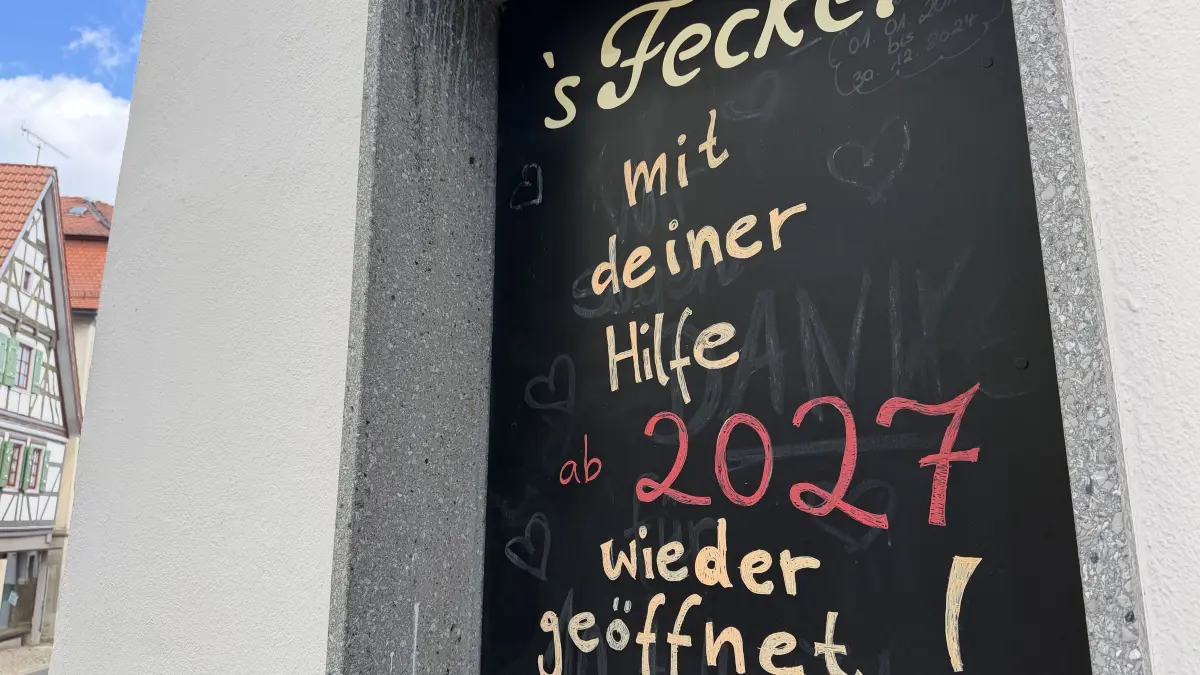 's Fecker
01.01.201
bis
30.12.2024
mit
deiner
Hilfe
DANK
ab 2027
für
wieder
geöffnet !